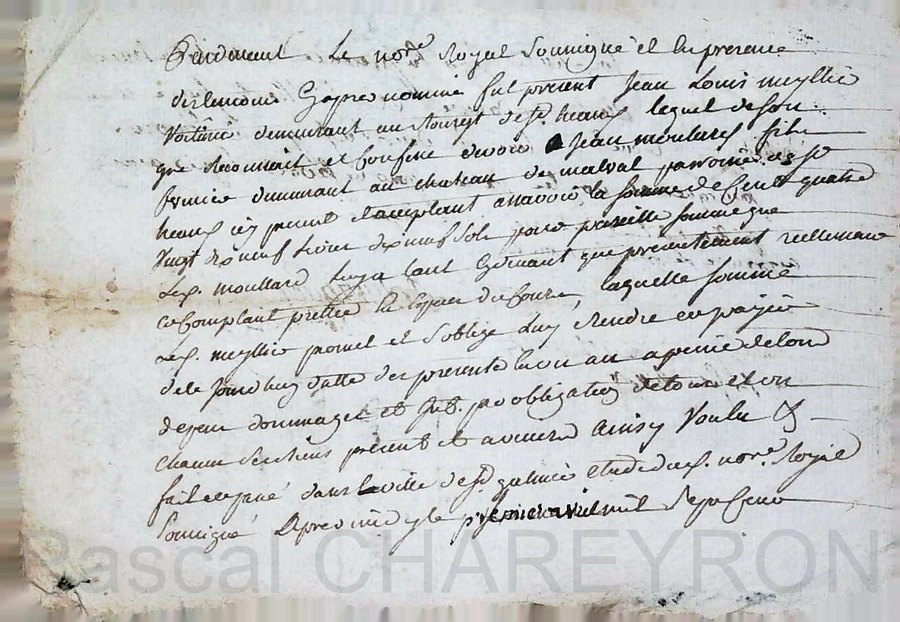 Pardevant Le nore Royal Soussigné et En presence
des temoins Cy apres nommé fut present Jean Louis meyllié
Voiturier demeurant au de St. heand lequel de son
gre Reconnait et Confesse devoir a Jean moullard fils
fermier demeurant au chateau de malval parroisse de St
heand icy present et acceptant assavoir la somme de Cent quatre
Vingt dix neuf livres dix neuf Sols pour pareille somme que
Led. moullard Luy a tant Cydevant que presentement reellement
et Comptant prettée En Especes de Cours, laquelle somme
Led. meyllié promet et S'oblige Luy Rendre et payer
de ce Jourdhuy datte des presentes En un an a peine de tous
depens dommages et Int. par obligation de tous et un
Chacun Ses biens presents et avenirs Ainsy Voulu &
fait et passé dans la Ville de St galmier etude dud. nore. Royal
Soussigné Apres midy le premier avril mil Sept Cent
Pascal CHAREYRON